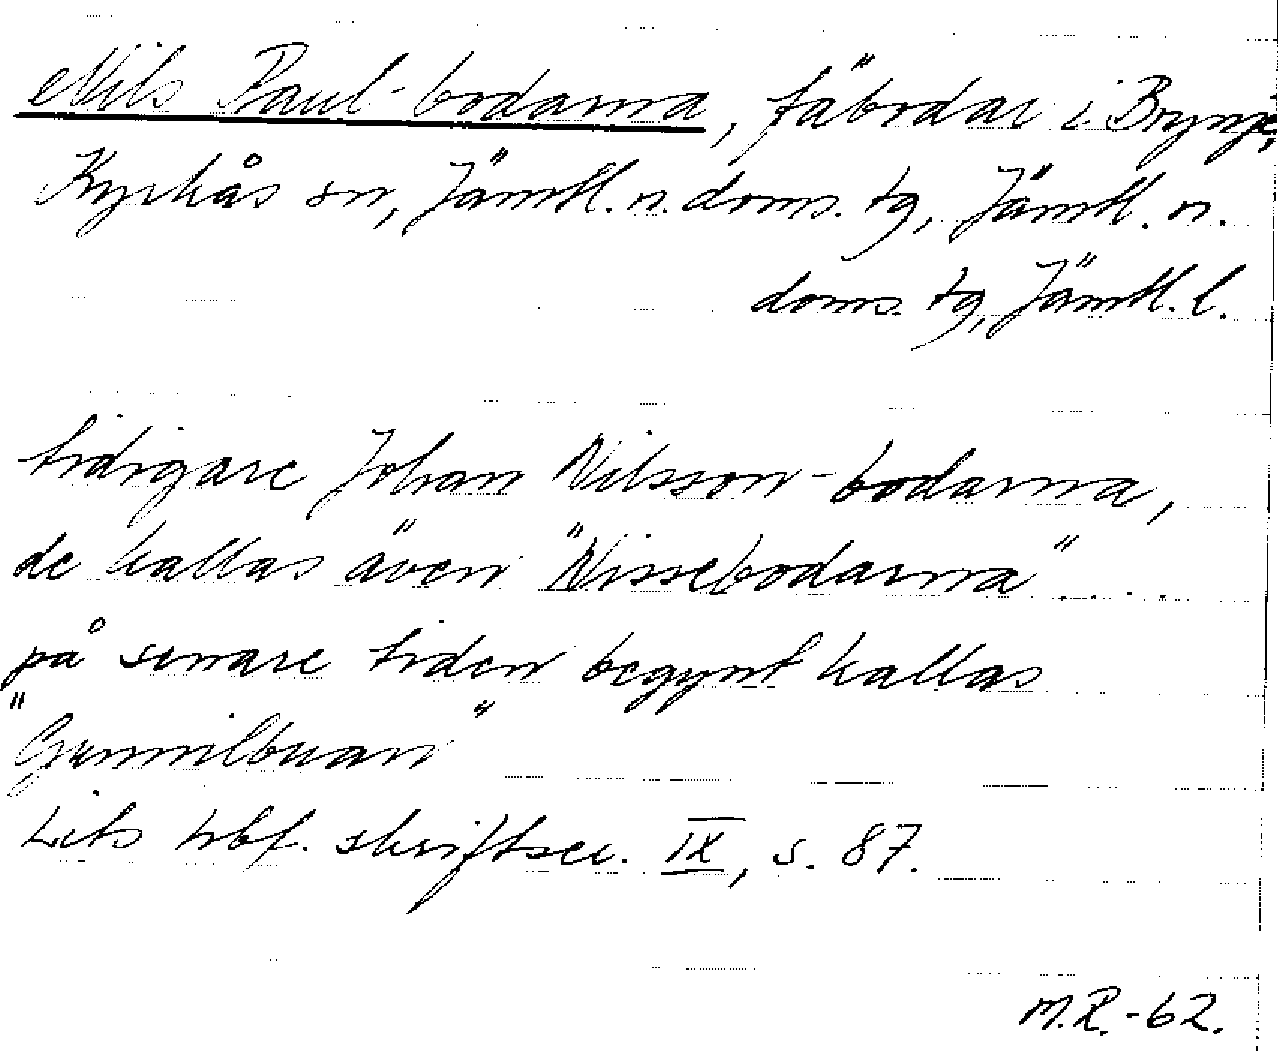 Nils Paul-bodarna, fäbodar i Brynje,
Kyrkås sn, Jämtl. n. doms. tg, Jämtl. n.
doms. tg, Jämtl. l.
tidigare Johan Nilsson-bodarna,
de kallas även "Nissebodarna"....
på senare tiden begynt kallas
"Gunnilbuan"
Lits hbf. skriftser. IX, s. 87.
M.R.-62.